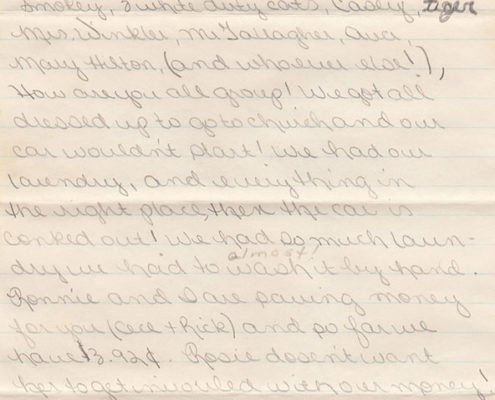 Smokey, 3 white duty cats, Casey, tiger
Mrs. Winkler, Mr. Gallagher, Ava,
Mary Hilton, (and whoever else!),
How are you all group! We got all
dressed up to go to chirch and our
car wouldn't start! We had our
laundry, and everything in
the right place, then the car is
conked out! We had so much laun-
almost!
dry we had to wash it by hand.
Ronnie and I are saving money
for you (Cece + Rick) and so far we
have $3.92¢. Rosie dosen't want
her to get invouled with our money!